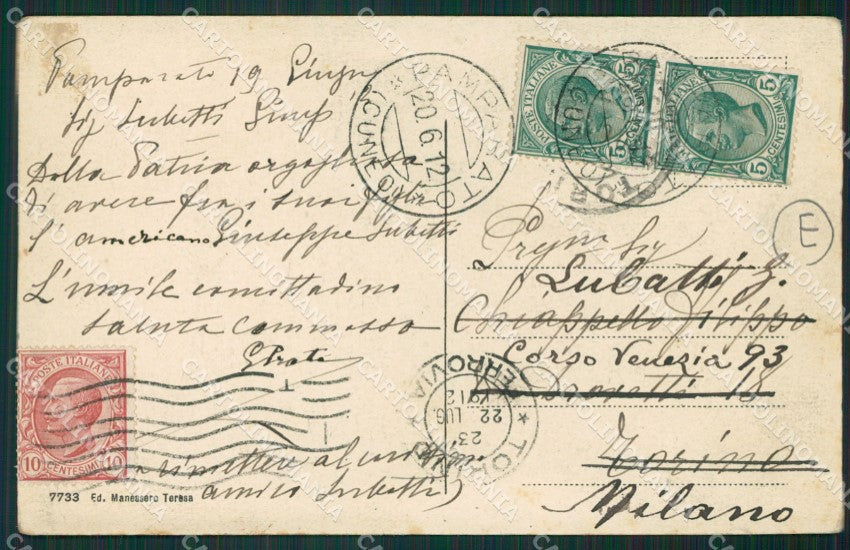 Pamparato 19 Giugno
Sig Lubatti Giusep
Della Patria orgogliosa
d'avere fra i suoi figli
l'americano Giuseppe Lubatti
L'umile comittadino
saluta commosso
GPrato
rimettere al
amico Lubatti)
7733 Ed. Manessero Teresa
PAMPARATO
20.6.12
(CUNEO)
POSTE ITALIANE
5 CENTESIMI 5
POSTE ITALIANE
5 CENTESIMI 5
POSTE ITALIANE
10 CENTESIMI 10
E
Pregm Sig
Lubatti G.
Chiappello Filippo
Corso Venezia 93
18
Torino
Milano
TORINO FERROVIA
22 LUG
CARTOLINOMANIA